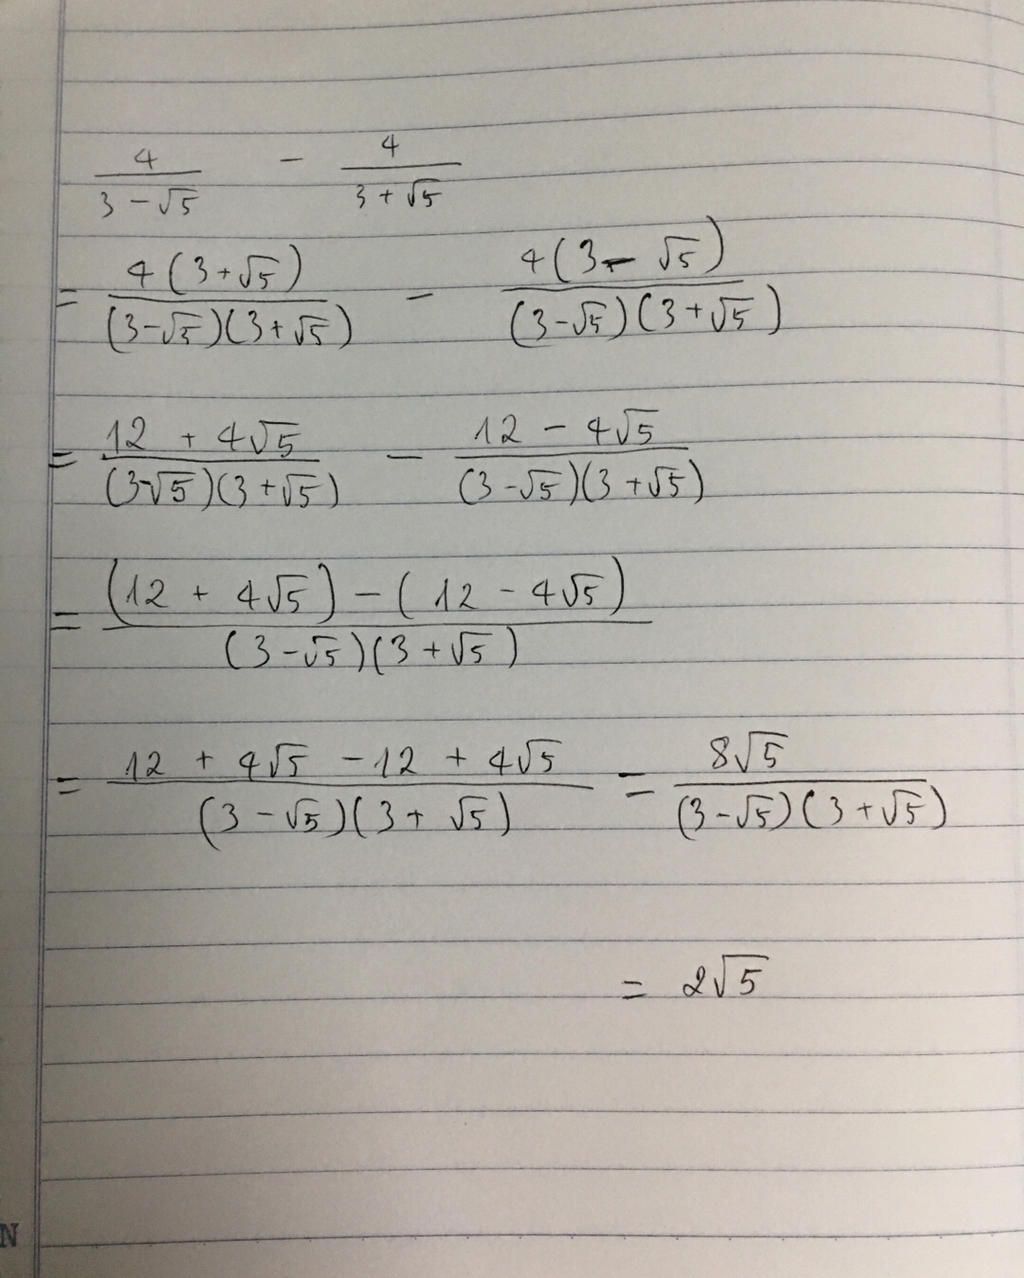 4/(3 - √5) - 4/(3 + √5)
= 4(3 + √5)/((3 - √5)(3 + √5)) - 4(3 - √5)/((3 - √5)(3 + √5))
= (12 + 4√5)/((3-√5)(3 + √5)) - (12 - 4√5)/((3 - √5)(3 + √5))
= ((12 + 4√5) - (12 - 4√5))/((3 - √5)(3 + √5))
= (12 + 4√5 - 12 + 4√5)/((3 - √5)(3 + √5)) = 8√5/((3 - √5)(3 + √5))
= 2√5
N